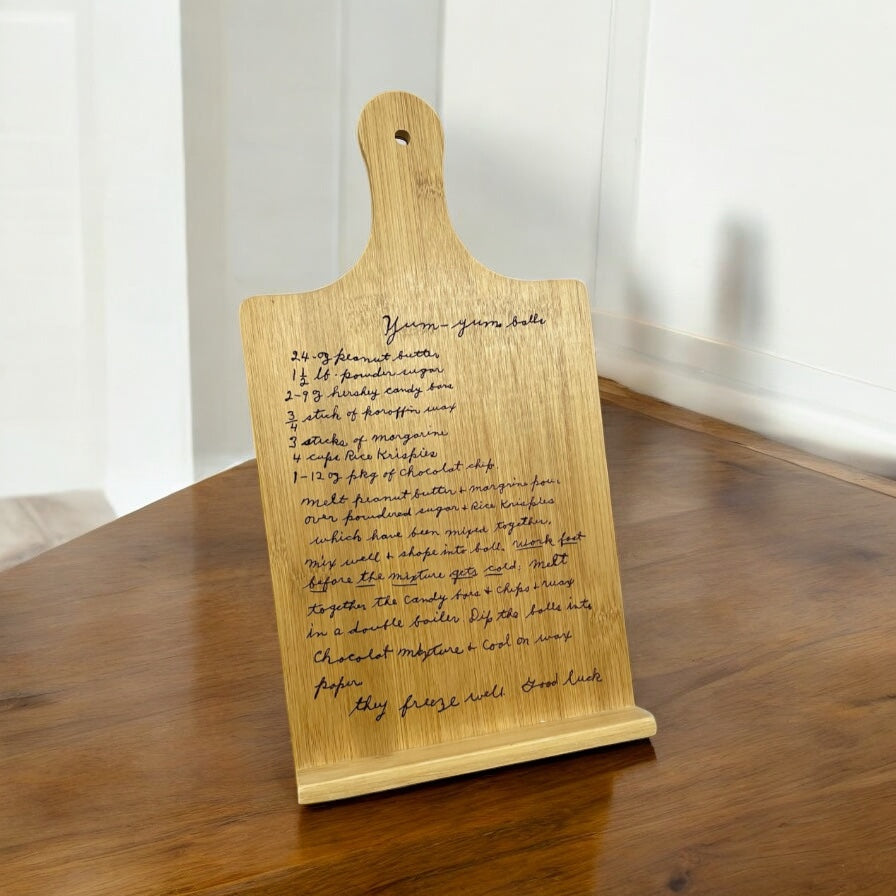 Yum-yum balls
24-oz peanut butter
1 1/2 lb. powder sugar
2-9 oz hershey candy bars
3/4 stick of paroffin wax
3 sticks of margarine
4 cups Rice Krispies
1-12 oz pkg of chocolat chip.
melt peanut butter + margrine pour
over powdered sugar + Rice Krispies
which have been mixed together.
mix well & shape into ball. work fast
before the mixture gets cold. melt
together the candy bars + chips + wax
in a double boiler. Dip the balls into
chocolat mixture & cool on wax
paper
they freeze well. Good luck